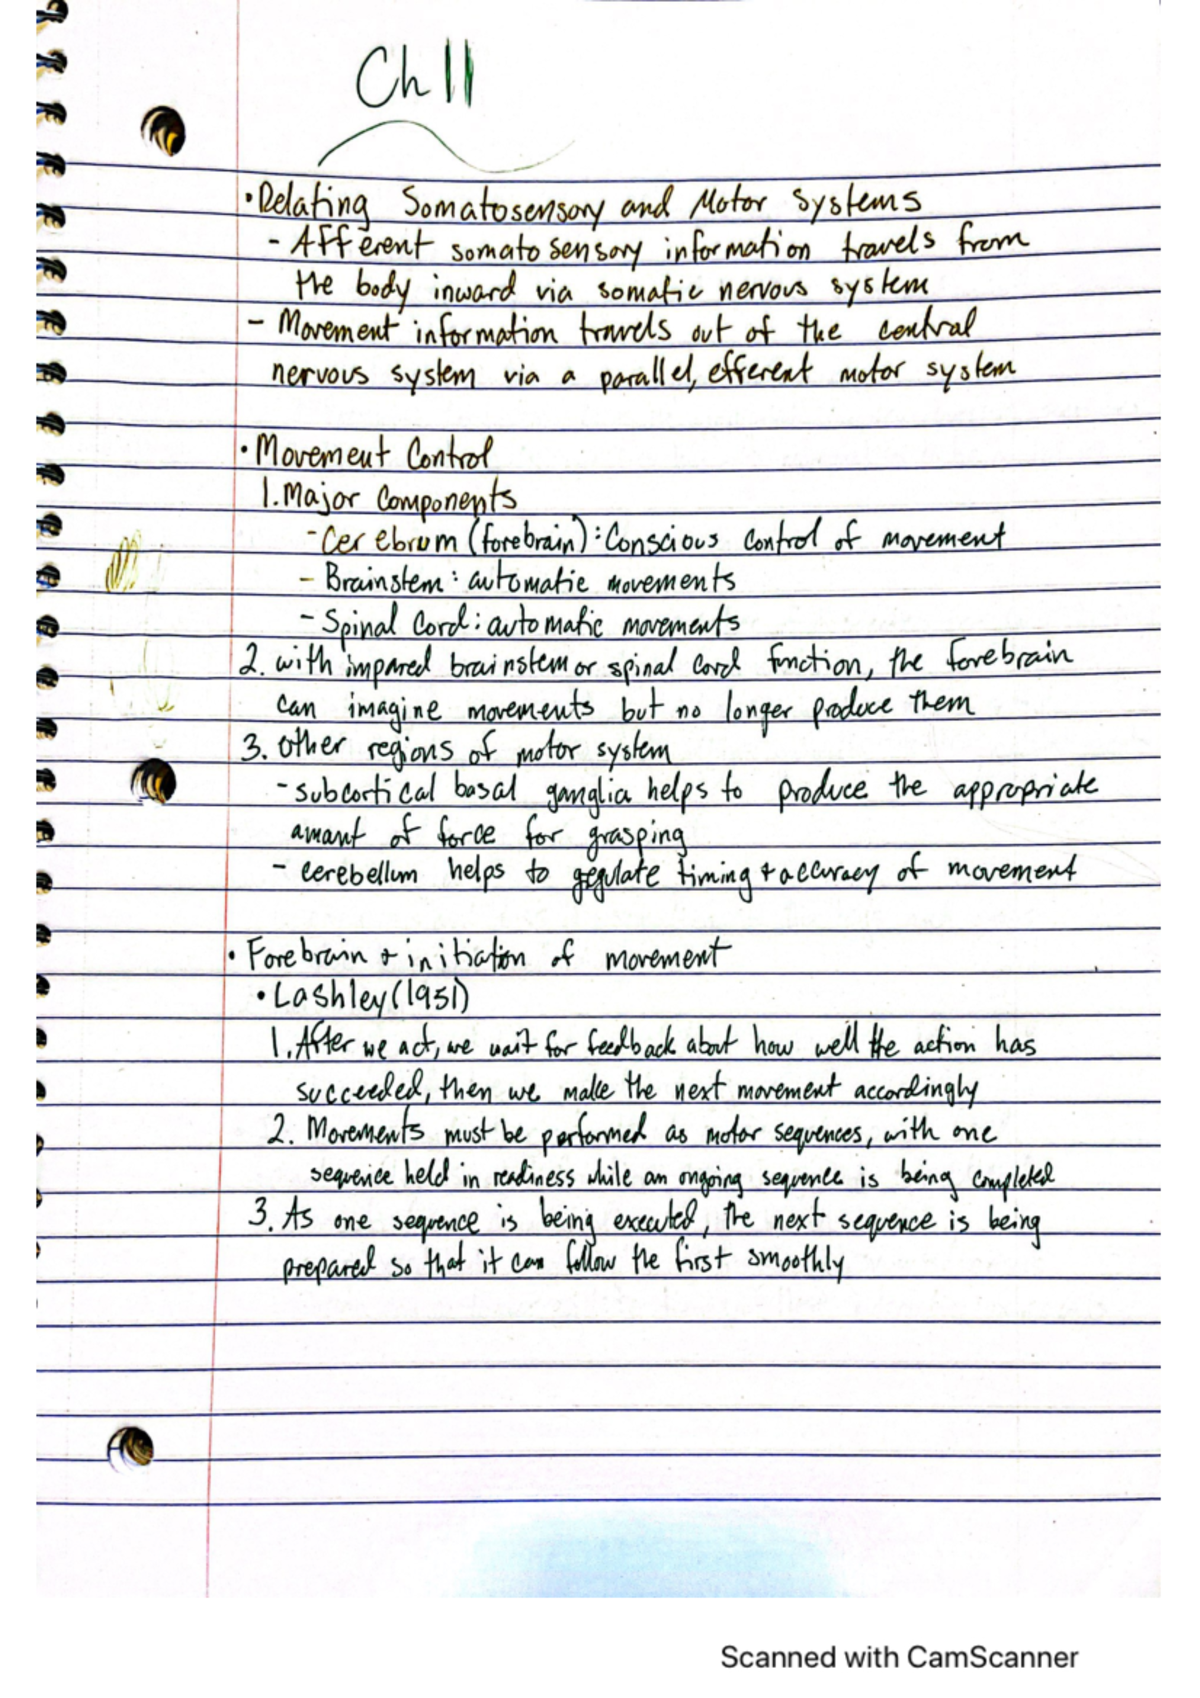 Ch 11
• Relating Somatosensory and Motor Systems
- Afferent somatosensory information travels from
the body inward via somatic nervous system
- Movement information travels out of the central
nervous system via a parallel, efferent motor system
• Movement Control
1. Major Components
- Cerebrum (forebrain): Conscious control of movement
- Brainstem: automatic movements
- Spinal Cord: automatic movements
2. with impared brainstem or spinal cord function, the forebrain
can imagine movements but no longer produce them
3. Other regions of motor system
- subcortical basal ganglia helps to produce the appropriate
amant of force for grasping
- cerebellum helps to gegulate timing + accuracy of movement
• Forebrain + initiation of movement
• Lashley (1951)
1. After we act, we wait for feedback about how well the action has
succeeded, then we make the next movement accordingly
2. Movements must be performed as motor sequences, with one
sequence held in readiness while an ongoing sequence is being completed
3. As one sequence is being executed, the next sequence is being
prepared so that it can follow the first smoothly
Scanned with CamScanner